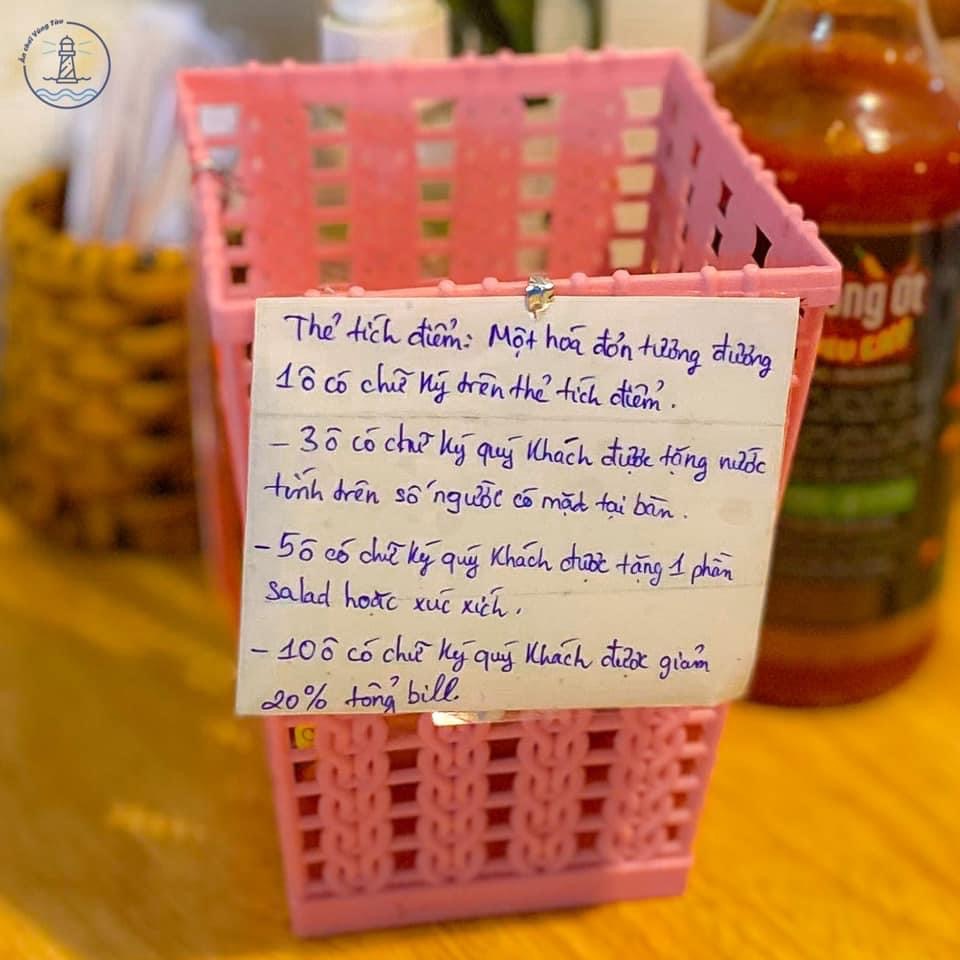 Ăn chơi Vũng Tàu
Thẻ tích điểm: Một hoá đơn tương đương
1 ô có chữ ký trên thẻ tích điểm.
- 3 ô có chữ ký quý khách được tặng nước
tính trên số người có mặt tại bàn.
- 5 ô có chữ ký quý khách được tặng 1 phần
salad hoặc xúc xích.
- 10 ô có chữ ký quý khách được giảm
20% tổng bill.